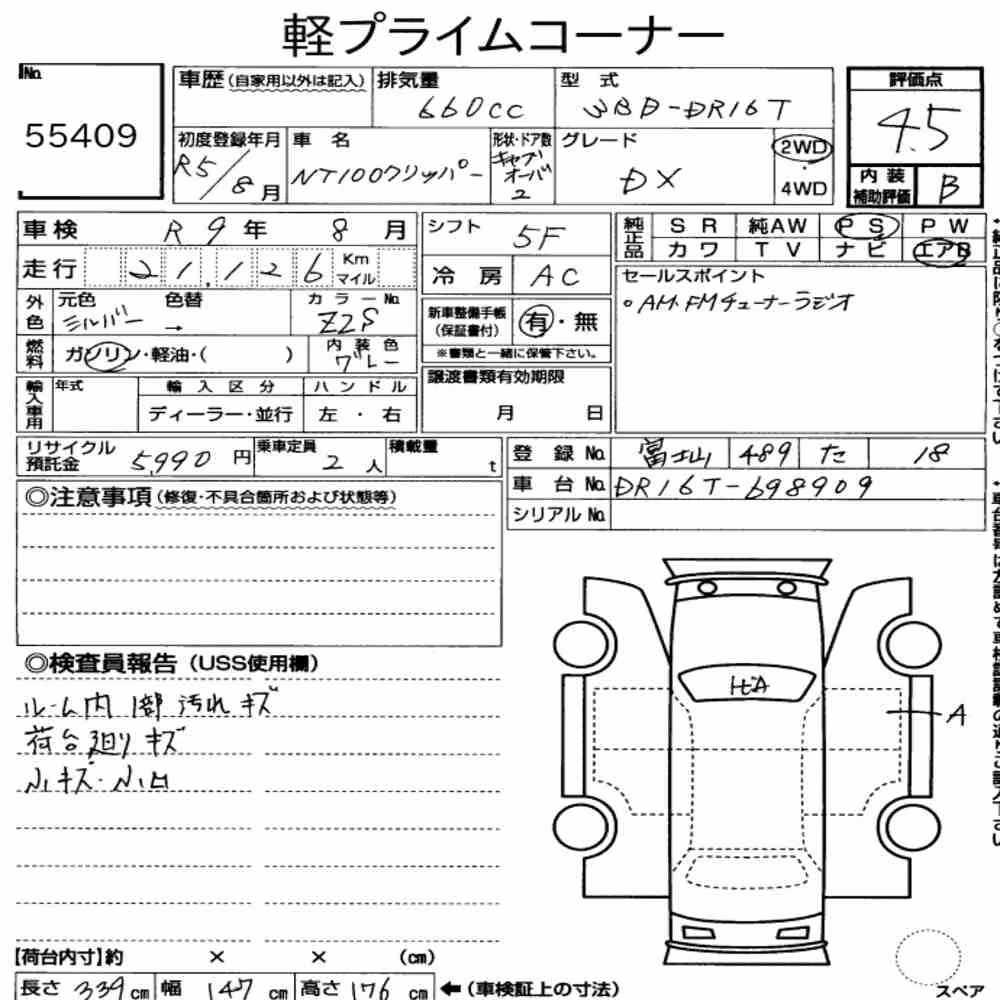 軽プライムコーナー
No.
55409
車歴(自家用以外は記入)
排気量
660cc
型 式
3BD-DR16T
評価点
4.5
初度登録年月
R5/8月
車 名
NT100クリッパー
形状・ドア数
キャブオーバ
2
グレード
DX
2WD
4WD
内装補助評価
B
車検 R 9 年 8 月
走行 21,126 Km マイル
シフト 5F
冷 房 AC
純正品 SR 純AW PS PW
カワ TV ナビ エアB
セールスポイント
・AM.FMチューナーラジオ
外色 元色 シルバー 色替 → カラーNo. Z2S
燃料 ガソリン・軽油・( )
内装色 グレー
新車整備手帳(保証書付) 有・無
※書類と一緒に保管下さい。
輸入車用 年式 輸入区分 ハンドル
ディーラー・並行 左・右
譲渡書類有効期限
月 日
リサイクル預託金 5,990 円
乗車定員 2 人
積載量 t
登 録 No. 富山 489 た 18
車 台 No. DR16T-698909
シリアル No.
◎注意事項(修復・不具合箇所および状態等)
◎検査員報告(USS使用欄)
ルーム内 1部 汚れ キズ
荷台廻り キズ
小キズ・小凹
A
【荷台内寸】約 × × (cm)
長さ 339 cm 幅 147 cm 高さ 176 cm ←(車検証上の寸法)
スペア